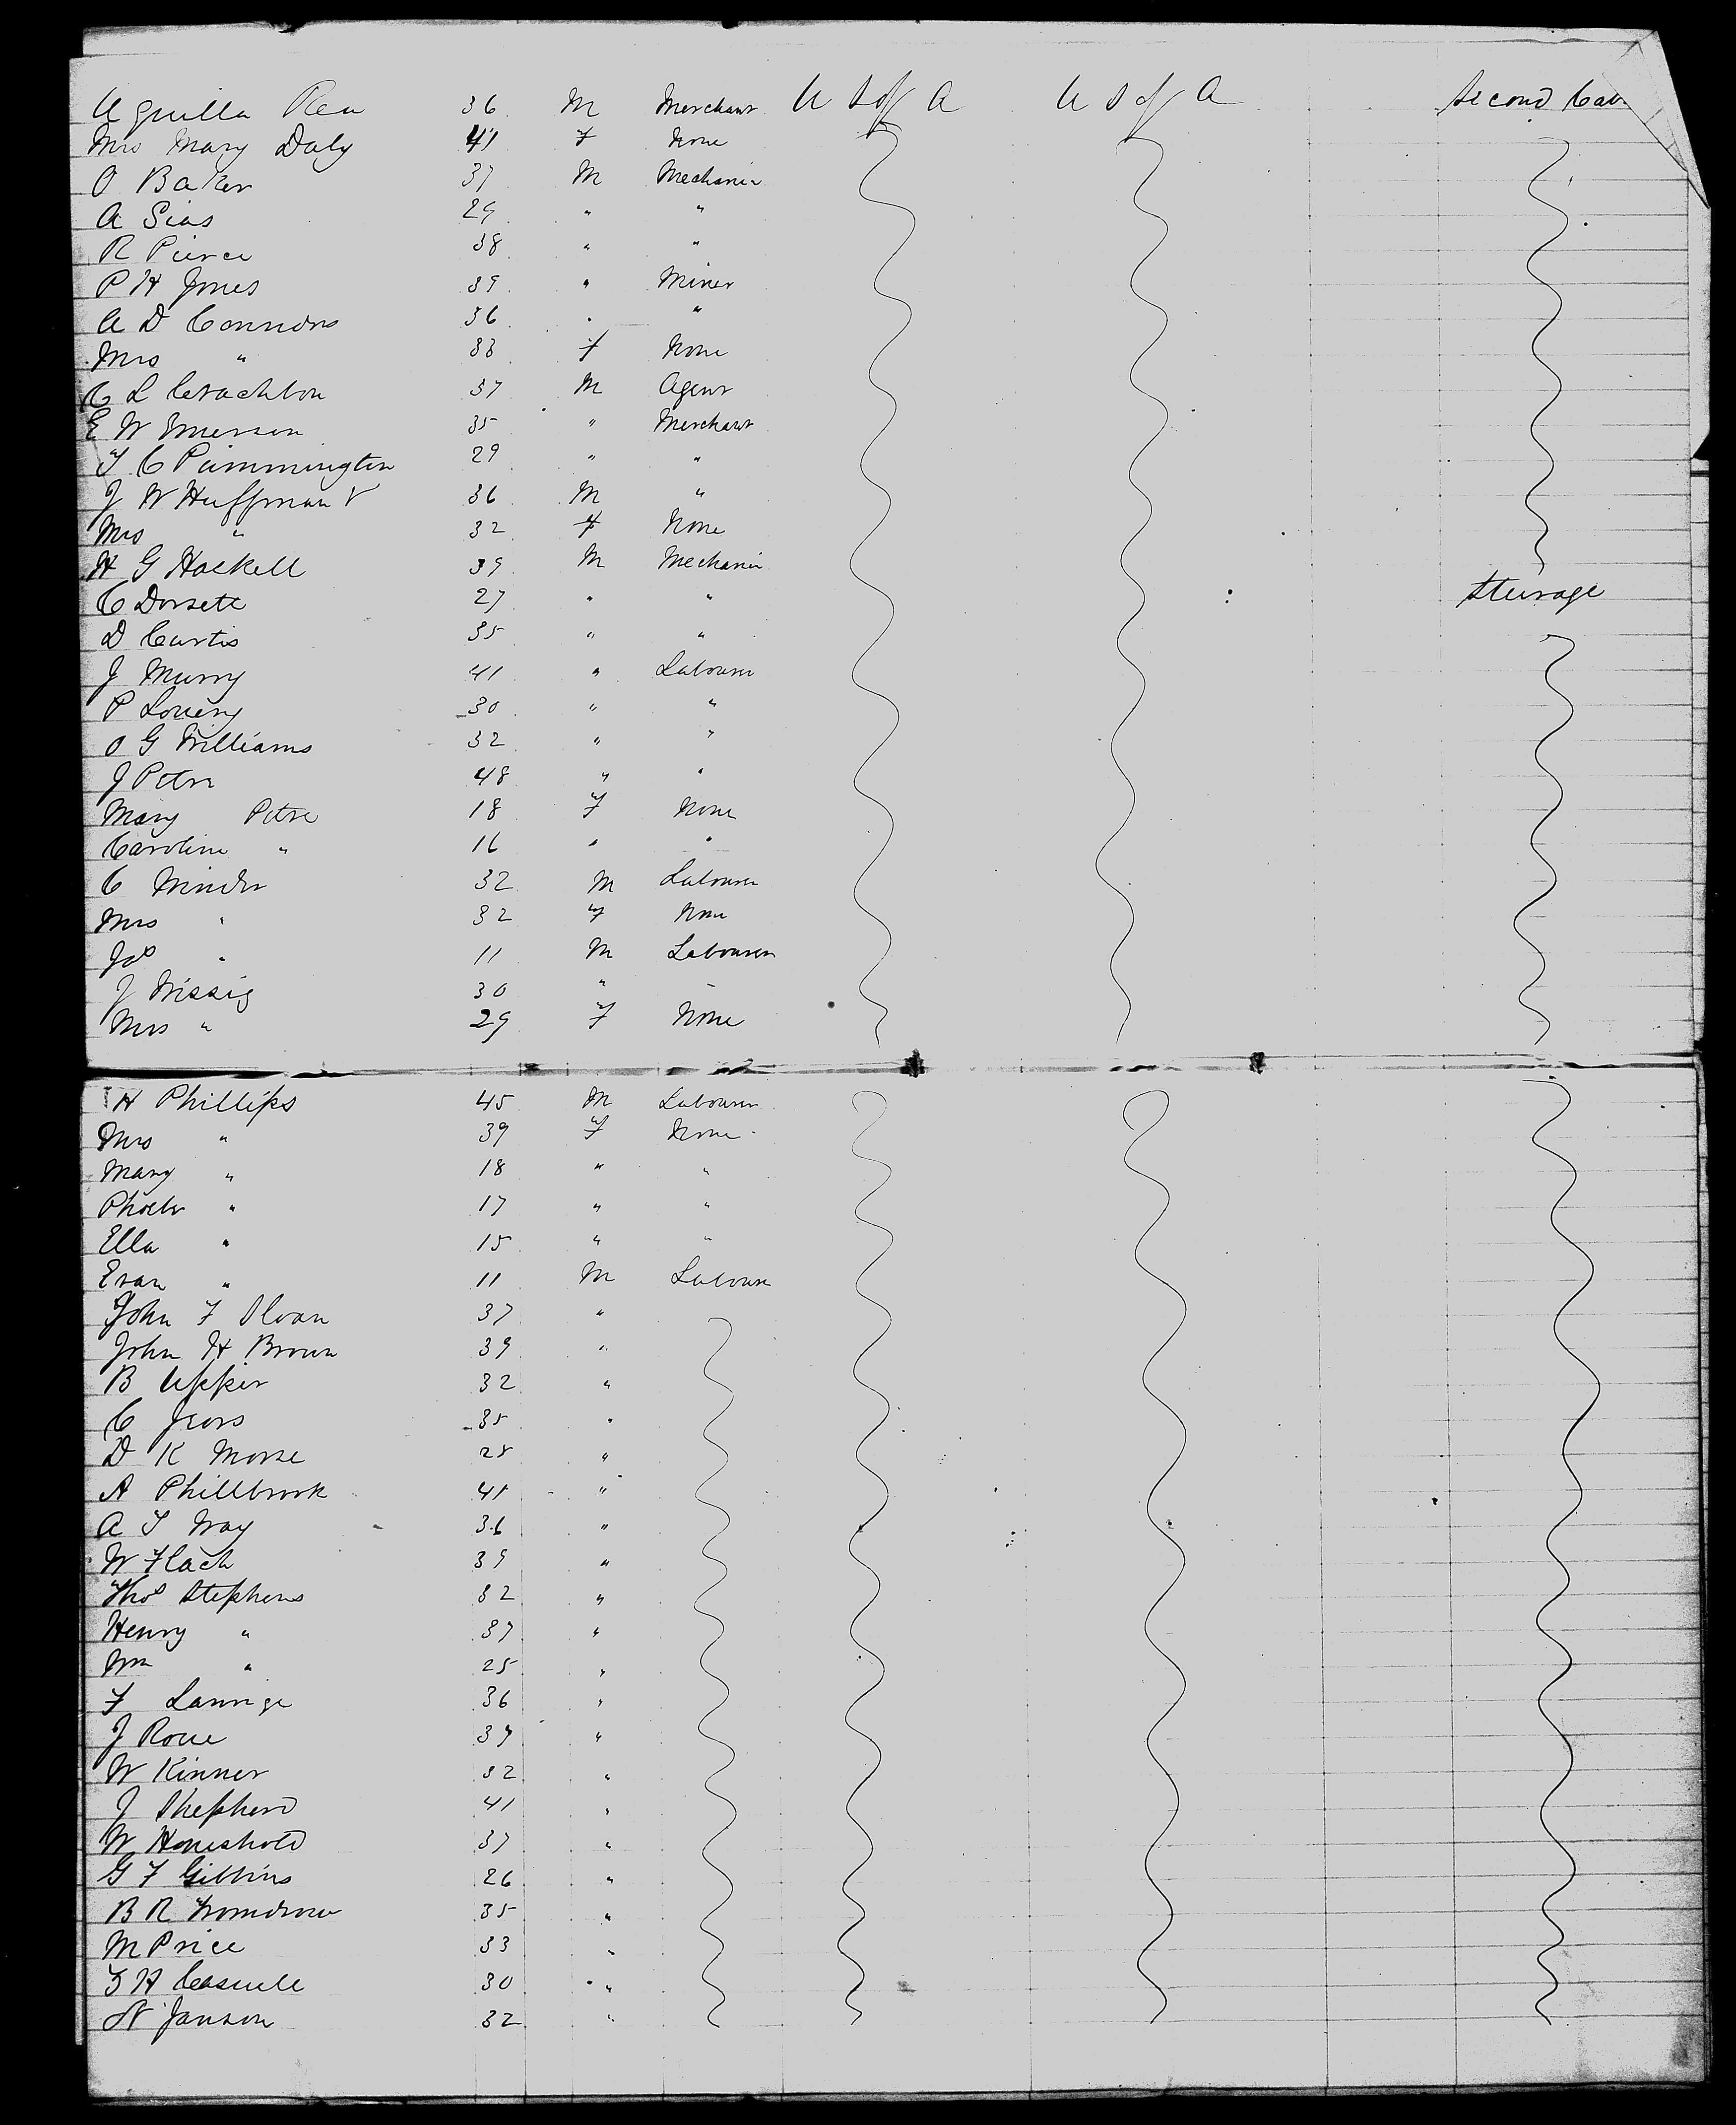 Aquilla Rea 36 M Merchant U S of A U S of A Second Cab
Mrs Mary Daly 41 F None
O Baker 37 M Mechanic
A Sias 29 " "
R Pierce 38 " "
P H Jones 39 " Miner
A D Connors 36 " "
Mrs " 33 F None
C L Crachton 37 M Agent
E W Emerson 35 " Merchant
T C Pummington 29 " "
J W Huffman V 36 M "
Mrs " 32 F None
H G Haskell 39 M Mechanic
C Dorsett 27 " " Steerage
D Curtis 35 " "
J Murry 41 " Labourer
P Loueny 30 " "
O G Williams 32 " "
J Petre 48 " "
Mary Petre 18 F None
Caroline " 16 " "
C Winder 32 M Labourer
Mrs " 32 F None
Jos " 11 M Labourer
J Wissig 30 "
Mrs " 29 F None
H Phillips 45 M Labourer
Mrs " 39 F None
Mary " 18 " "
Phoebe " 17 " "
Ella " 15 " "
Evan " 11 M Labourer
John F Sloan 37 "
John H Brown 39 "
B Upper 32 "
C Jeors 35 "
D K Morse 28 "
A Phillbrook 41 "
A T Way 36 "
W Flach 39 "
Thos Stephens 32 "
Henry " 37 "
Wm " 25 "
F 36 "
J Roue 37 "
W Kinner 32 "
J Shepherd 41 "
W Household 37 "
G F Gibbins 26 "
B R 35 "
M Price 33 "
30 "
N Janson 32 "